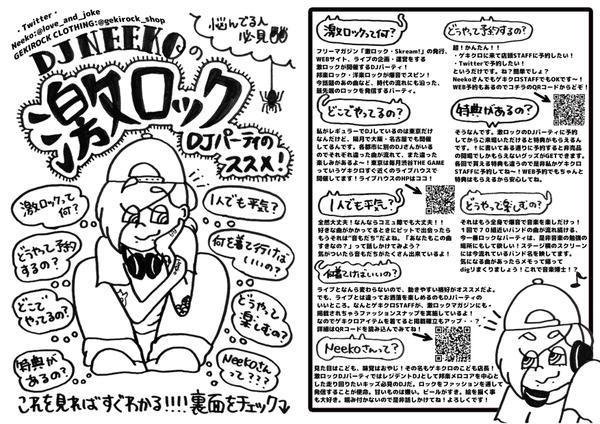 ・Twitter・
Neeko:@love_and_joke
GEKIROCK CLOTHING:@gekirock_shop
悩んでる人
必見
DJ NEEKOの
激ロック
DJパーティの
ススメ!
激ロックって
何?
1人でも平気?
どうやって予約
するの?
何を着て行けば
いいの?
どこで
やってるの?
どうやって
楽しむの?
特典が
あるの?
Neekoさん
って???
これを見ればすぐわかる!!!!裏面をチェック
激ロックって何?
フリーマガジン「激ロック・Skream!」の発行、
WEBサイト、ライブの企画・運営をする
激ロックが開催するDJパーティー!
邦楽ロック・洋楽ロックが爆音でスピン!
今話題のあの曲など、時代の流れにも沿った、
最先端のロックを発信するパーティ。
どこでやってるの?
私がレギュラーでDJしているのは東京だけ
なんだけど、隔月で大阪・名古屋でも開催
してるんです。各都市に別のDJさんがいる
のでそれぞれ違った曲が流れて、また違った
楽しみがあるよ〜!東京は毎月渋谷THE GAME
っていうゲキロックすぐ近くのライブハウスで
開催してます!ライブハウスのHPはココ!
1人でも平気?
全然大丈夫!なんならコミュ障でも大丈夫!!
好きな曲がかかってるときにビットで出会ったら
もうそれは"音もだち"だよね。「あなたもこの曲
すきなの?」って話しかけてみよう?
気がついたら音もだちがたくさん出来ているよ!
何着てけばいいの?
ライブとなんら変わらないので、動きやすい格好がオススメだよ。
でも、ライブとは違ってお洒落を楽しめるのもDJパーティの
いいところ。なんとゲキロックSTAFFが、激ロックマガジンにも
掲載されちゃうファッションスナップを実施しているよ!
なのでゲキロックアイテムを着てると掲載確立もアップ・・?
詳細はQRコードを読み込んでみてね!
Neekoさんって?
見た目はこども、味覚はおやじ!その名もゲキロックのこども店長!
激ロックDJパーティではレジデントDJとして邦楽メロコアを中心と
した走り回りたいキッズ必見のDJだ。ロックをファッションを通して
発信することが使命。甘いものは嫌い。ビールがすき。絵を描く事
も大好き。噛み付かないので是非話しかけてね!よろしくです!
どうやって予約するの?
超!かんたん!!
・ゲキロックに来て店頭STAFFに予約したい!
・Twitterで予約したい!
というだけです。ね?簡単でしょ?
Neekoさんでもゲキロック STAFFでもOKです〜!
WEB予約もあるのでコチラのQRコードからどぞ!
特典があるの?
そうなんです。激ロックのDJパーティに予約
してからご来場いただけると特典がもらえるん
です。↑に書いてある通りに予約すると非売品
の開場でしかもらえないグッズがGETできます。
各回で貰える特典も違うので是非私かゲキロ
STAFFに予約してね〜!WEB予約でもちゃんと
特典はもらえるから安心してね。
どうやって楽しむの?
それはもう全身で爆音で音楽を楽しむだけっ!
1回で70組近いバンドの曲が流れ続ける、
今一番ロックなパーティは、是非音楽の勉強の
場所にもして欲しい!ステージ横のスクリーン
には今流れているバンド名を映してます。
気になる曲があったらメモって帰って
digりまくりましょう!これで音楽博士!?